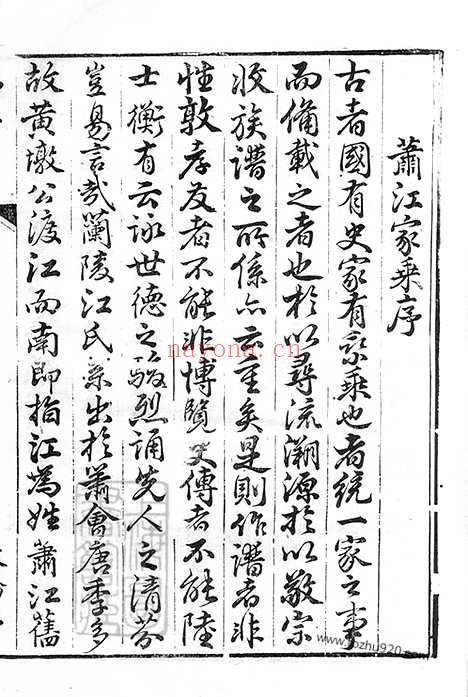 蕭江家乘序
古者國有史家有乘乘也者統一家之事
而備載之者也於以尋流溯源於以敬宗
收族譜之所係亦重矣是則作譜者非
性敦孝友者不能非博覽史傳者不能陸
士衡有云詠世德之駿烈誦先人之清芬
豈易言哉蘭陵江氏系出於蕭會唐季多
故黃墩公渡江而南即指江為姓蕭江舊
nayona.cn
www.fozhu920.com